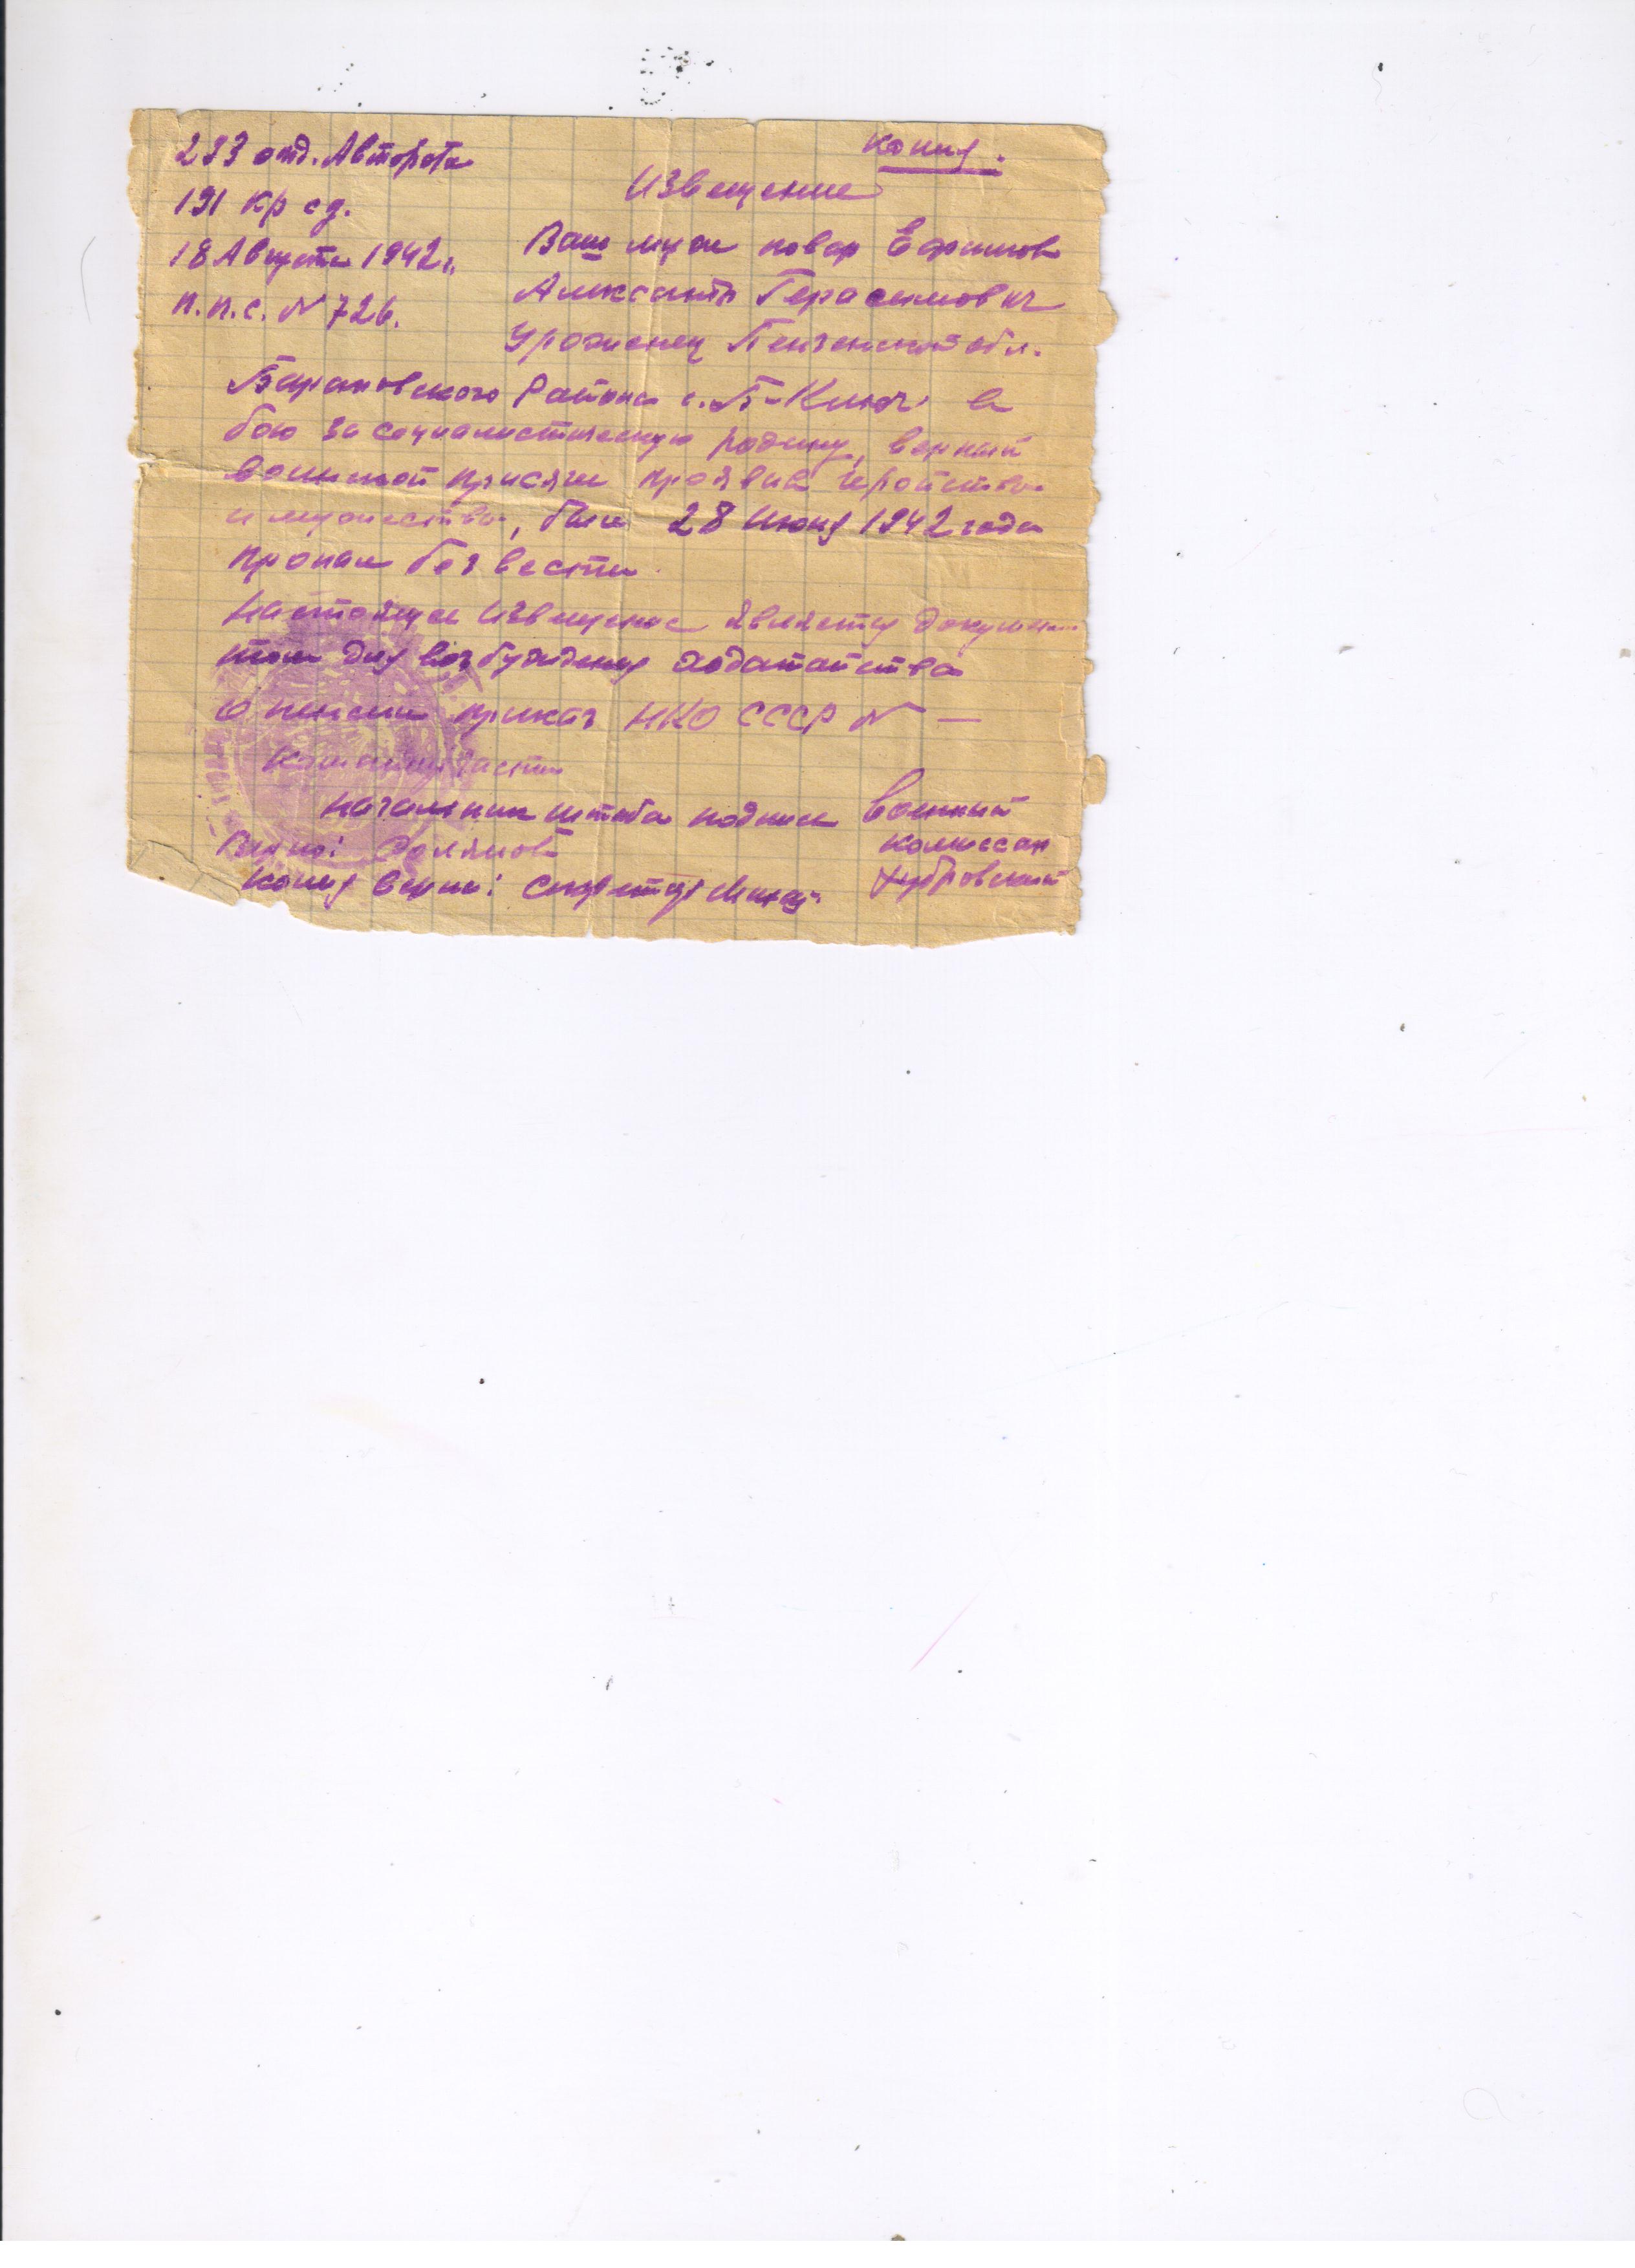 копия.
Извещение
293 отд. Авторота
191 кр сд.
18 Августа 1942 г.
п.п.с. N 726.
Ваш муж повар Ефимов
Александр Герасимович
Уроженец Пензенской обл.
Барановского Района с. Б-Ключ в
бою за социалистическую родину, верный
военной присяги проявив геройство
и мужество, был 28 Июня 1942 года
пропал без вести
Настоящее извещение является докумен
том для возбуждения ходатайства
О пенсии приказ НКО СССР N —
Командир части
начальник штаба подпись
Военный
комиссар
копия верна: